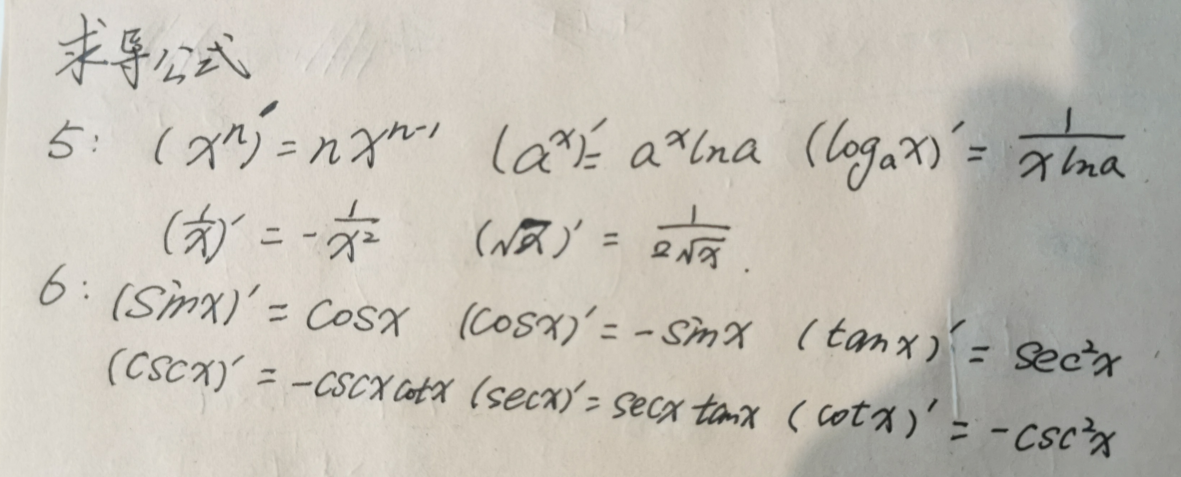 求导公式
5: (xⁿ)′ = nxⁿ⁻¹ (aˣ)′ = aˣlna (logₐx)′ = 1/(xlna)
(1/x)′ = -1/x² (√x)′ = 1/(2√x).
6: (sinx)′ = cosx (cosx)′ = -sinx (tanx)′ = sec²x
(cscx)′ = -cscxcotx (secx)′ = secx tanx (cotx)′ = -csc²x